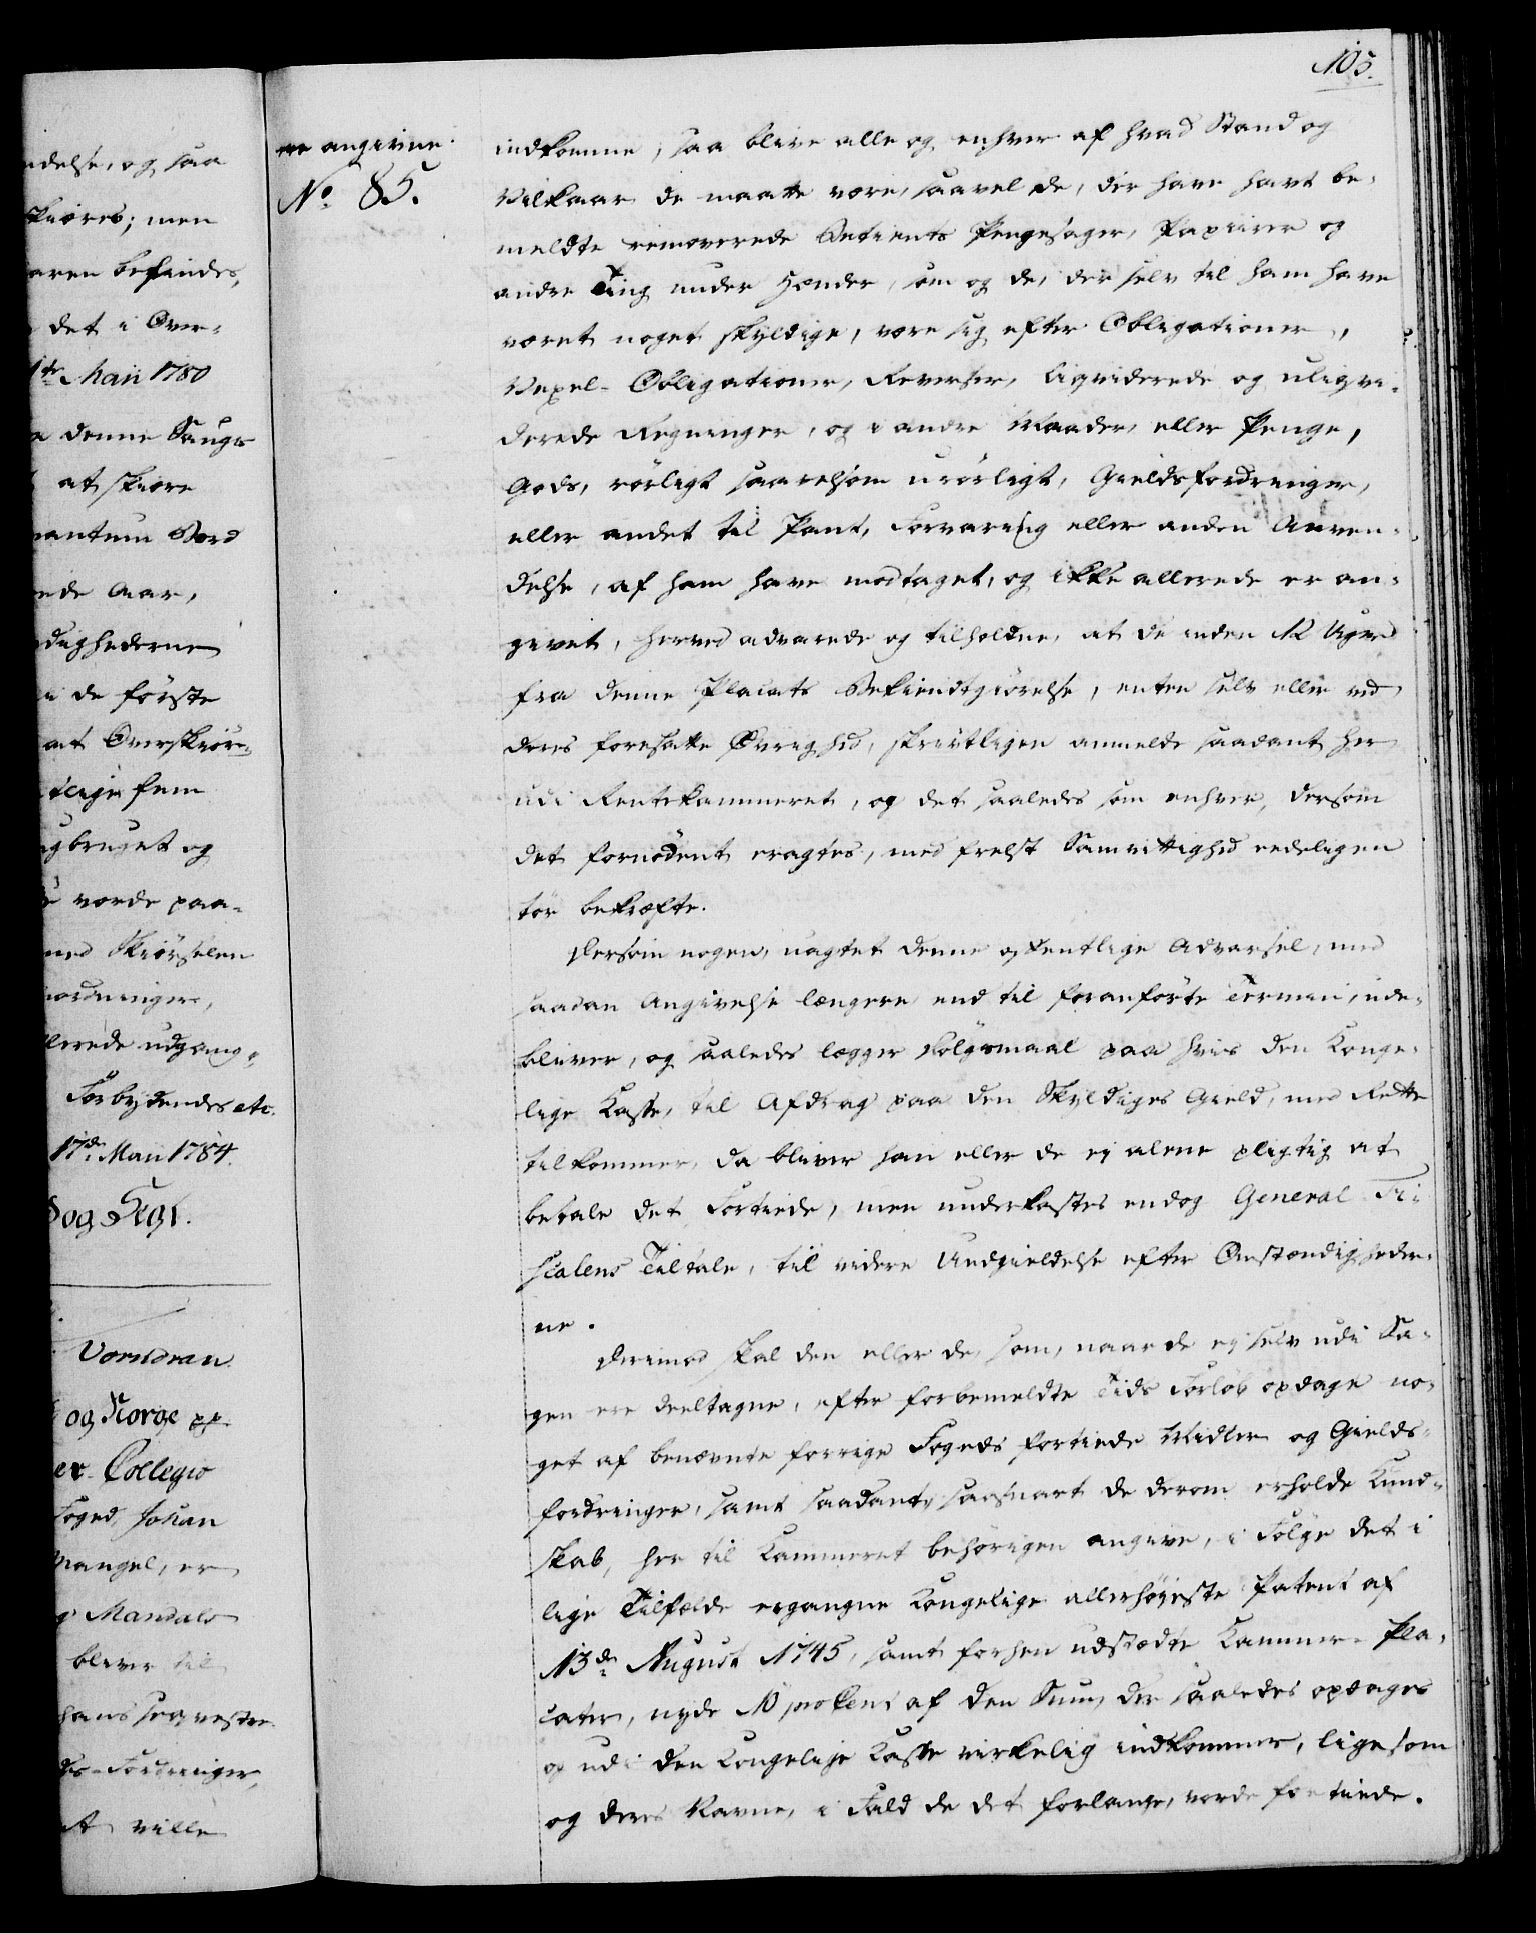 103.
ndelse, og saa
skiøres; men
aren befindes,
det i Over-
1ste Maii 1780
denne Saugs
at skiøre
qvantum Bord
ede Aar,
dighederne
i de første
at Overskiøre,
tlige fem
ugbruget og
vorde paa-
med Skiørselen
ordninger,
llerede udgang-
Forbydendes etc.
17de Maii 1784.
og Segl.
Vorndran
og Norge pp
er-Collegio
Foged Johan
Mangel, er
Mandals
bliver til
hans seqvestre
ds-Fordringer,
ville
ere angivne.
No. 85.
indkomme, saa blive alle og enhver af hvad Stand og
Vilkaar de maatte være, saavel de, der have havt be-
meldte removerede Betients Pengesager, Papiirer og
andre Ting under Hænder, som og de, der selv til ham have
været noget skyldige, være sig efter Obligationer,
Vexel-Obligationer, Reverser, liqviderede og uliqvi-
derede Regninger, og i andre Maader, eller Penge,
Gods, rørligt saavelsom urørligt, Gieldsfordringer,
eller andet til Pant, Forvaring eller anden Anven-
delse, af ham have modtaget, og ikke allerede er an-
givet, herved advarede og tilholdne, at de inden 12 Uger
fra denne Placats Bekiendtgiørelse, enten selv eller ved
deres foresatte Øvrighed, skriftligen anmelde saadant her
udi Rentekammeret, og det saaledes som enhver, dersom
det fornødent eragtes, med frelst Samvittighed eedeligen
tør bekræfte.
Dersom nogen, uagtet denne offentlige Advarsel, med
saadan Angivelse længere end til foranførte Termin, ude-
bliver, og saaledes lægger Dølgsmaal paa hvis den Konge-
lige Kasse, til Afdrag paa den Skyldiges Gield, med Rette
tilkommer, da bliver han eller de ej alene pligtig at
betale det Fortiede, men underkastes endog General Fi-
scalens Tiltale, til videre Undgieldelse efter Omstændigheder-
ne.
Derimod skal den eller de, som, naar de ej selv udi Sa-
gen ere deeltagne, efter forbemeldte Tids Forløb opdage no-
get af benævnte forrige Fogeds fortiede Midler og Gields-
fordringer, samt saadant, saasnart de derom erholde Kund-
skab, her til Kammeret behørigen angive, i Følge det i
lige Tilfælde ergangne Kongelige allerhøjeste Patent af
13de August 1745, samt forhen udstædte Kammer-Pla-
cater, nyde 10 prokent af den Sum, der saaledes opdages
og udi den Kongelige Kasse virkelig indkommer, ligesom
og deres Navne, i Fald de det forlange, vorde fortiede.